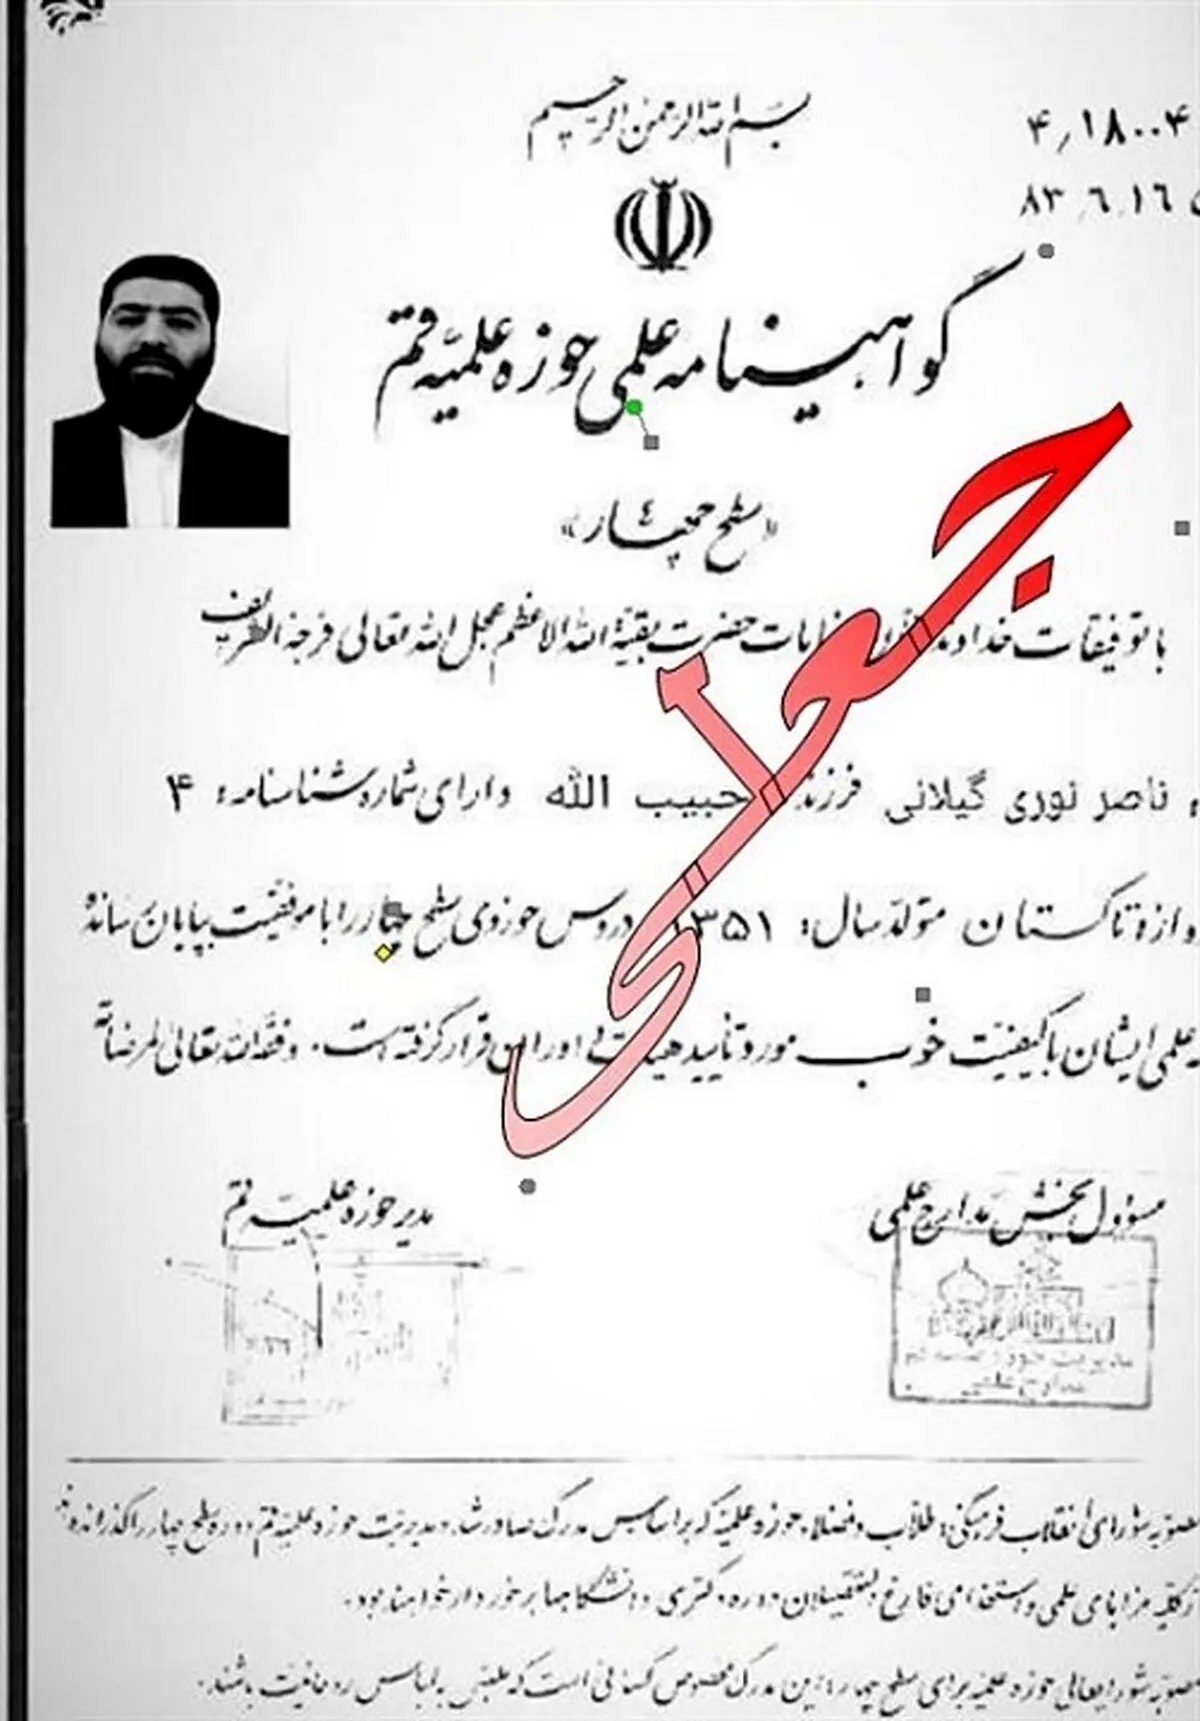 بسم الله الرحمن الرحیم
۴٫۱۸۰۰۴
۸۳٫۶٫۱۶
گواهینامه علمی حوزه علمیه قم
«سطح چهار»
با توفیقات خداوند حضرت بقیة الله الاعظم عجل الله تعالی فرجه الشریف
ناصر نوری گیلانی فرزند حبیب الله دارای شماره شناسنامه: ۴
تاکستان متولد سال: ۱۳۵۱ دروس حوزوی سطح چهار را با موفقیت بپایان رسانده
علمی ایشان با کیفیت خوب مورد تأیید هیئت قرار گرفته است. وفقه الله تعالی لمرضاته
جعلی
مسؤول بخش مدارج علمی
مدیر حوزه علمیه قم
مدیریت حوزه علمیه قم
مدارج علمی
شورای انقلاب فرهنگی: طلاب و فضلاء حوزه علمیه که براساس مدرک صادر شده مدیریت حوزه علمیه قم دوره سطح چهار را گذرانده
کلیه مزایای علمی و استخدامی فارغ التحصیلان دوره دکتری دانشگاهها برخوردار خواهند بود.
شورایعالی حوزه علمیه برای سطح چهار این مدرک مخصوص کسانی است که ملبس به لباس روحانیت باشند.